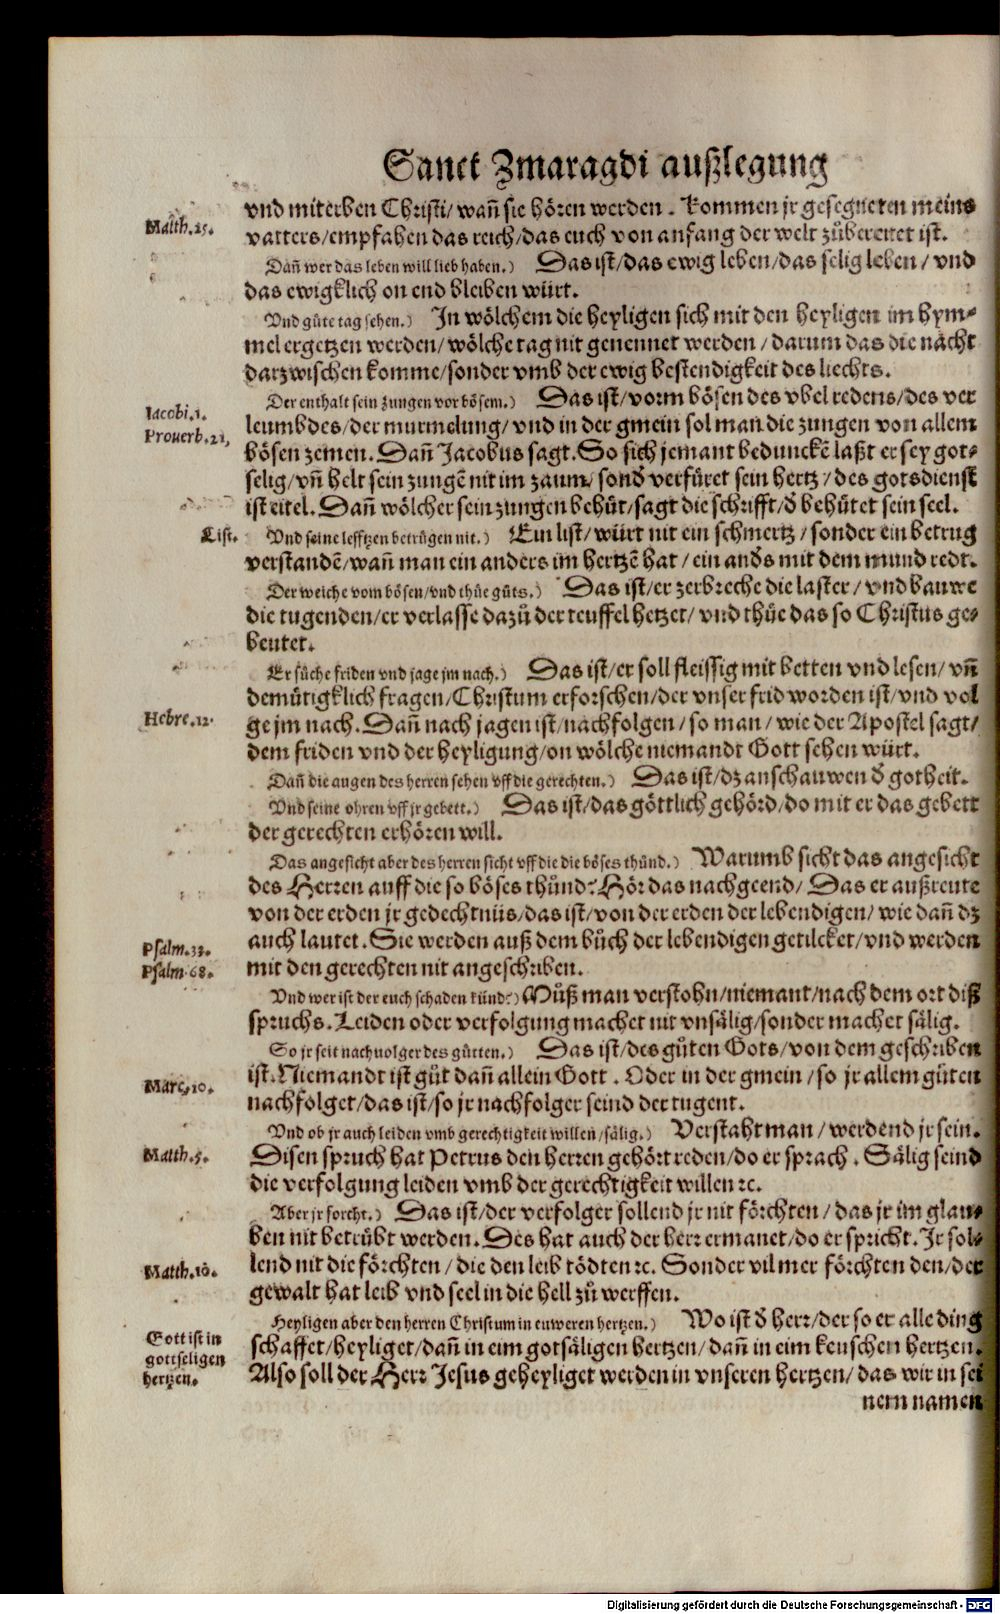 Sanct Zmaragdi außlegung
vnd miterben Christi/ wañ sie hören werden. Kommen jr gesegneten meins
Matth.25.
vatters/empfahen das reich/das euch von anfang der welt zůbereitet ist.
Dañ wer das leben will lieb haben.) Das ist/das ewig leben/das selig leben/ vnd
das ewigklich on end bleiben würt.
Vnd gůte tag sehen.) In wölchem die heyligen sich mit den heyligen im hym⸗
mel ergetzen werden/wölche tag nit genennet werden/darum das die nächt
darzwischen komme/sonder vmb der ewig bestendigkeit des liechts.
Der enthalt sein zungen vor bösem.) Das ist/vorm bösen des vbel redens/des ver
Iacobi.1.
leumbdes/der murmelung/vnd in der gmein sol man die zungen von allem
Prouerb.21,
bösen zemen. Dañ Jacobus sagt. So sich jemant beduncKē laßt er sey got⸗
selig/vñ helt sein zungē nit im zaum/sond̕ verfüret sein hertz/des gotsdienst
ist eitel. Dañ wölcher sein zungen behüt/sagt die schrifft/d̕ behütet sein seel.
List.
Vnd seine lefftzen betrügen nit.) Ein list/würt nit ein schmertz/sonder ein betrug
verstandē/wañ man ein anders im hertzē hat/ein and̕s mit dem mund redt.
Der weiche vom bösen/vnd thüe gůts.) Das ist/er zerbreche die laster/vnd bauwe
die tugenden/er verlasse dazů der teuffel hetzet/vnd thüe das so Christus ge⸗
beutet.
Er sůche friden vnd jage jm nach.) Das ist/er soll fleissig mit betten vnd lesen/vñ
demütigklich fragen/Christum erforschen/der vnser frid worden ist/vnd vol
Hebre.12.
ge jm nach. Dañ nach jagen ist/nachfolgen/so man/wie der Apostel sagt/
dem friden vnd der heyligung/on wölche niemandt Gott sehen würt.
Dañ die augen des herren sehen vff die gerechten.) Das ist/dz anschauwen d̕ gotheit.
Vnd seine ohren vff jr gebett.) Das ist/das göttlich gehörd/do mit er das gebett
der gerechten erhören will.
Das angesicht aber des herren sicht vff die die böses thůnd.) Warumb sicht das angesicht
des Herren auff die so böses thůnd? Hör das nachgeend/ Das er außreute
von der erden jr gedechtnüs/das ist/von der erden der lebendigen/wie dañ dz
Psalm.33.
auch lautet. Sie werden auß dem bůch der lebendigen getilcket/vnd werden
Psalm.68.
mit den gerechten nit angeschriben.
Vnd wer ist der euch schaden künd?) Můß man verstohn/niemant/nach dem ort diß
spruchs. Leiden oder verfolgung machet nit vnsälig/sonder machet sälig.
So jr seit nachuolger des gůtten.) Das ist/des gůten Gots/von dem geschriben
Marc.10.
ist. Niemandt ist gůt dañ allein Gott. Oder in der gmein/so jr allem gůten
nachfolget/das ist/so jr nachfolger seind der tugent.
Vnd ob jr auch leiden vmb gerechtigkeit willen/sälig.) Verstaht man/werdend jr sein.
Matth.5.
Disen spruch hat Petrus den herren gehört reden/do er sprach. Sälig seind
die verfolgung leiden vmb der gerechtigkeit willen ꝛc.
Aber jr forcht.) Das ist/der verfolger sollend jr nit förchten/das jr im glau⸗
ben nit betrübt werden. Des hat auch der herr ermanet/do er spricht. Jr sol⸗
Matth.10.
lend nit die förchten/die den leib tödten ꝛc. Sonder vil mer förchten den/der
gewalt hat leib vnd seel in die hell zů werffen.
Heyligen aber den herren Christum in euweren hertzen.) Wo ist d̕ herr/der so er alle ding
Gott ist in
gottseligen
hertzen.
schaffet/heyliget/dañ in eim gotsäligen hertzen/dañ in eim keuschen hertzen.
Also soll der Herr Jesus geheyliget werden in vnseren hertzen/das wir in sei
nem namen
Digitalisierung gefördert durch die Deutsche Forschungsgemeinschaft - DFG